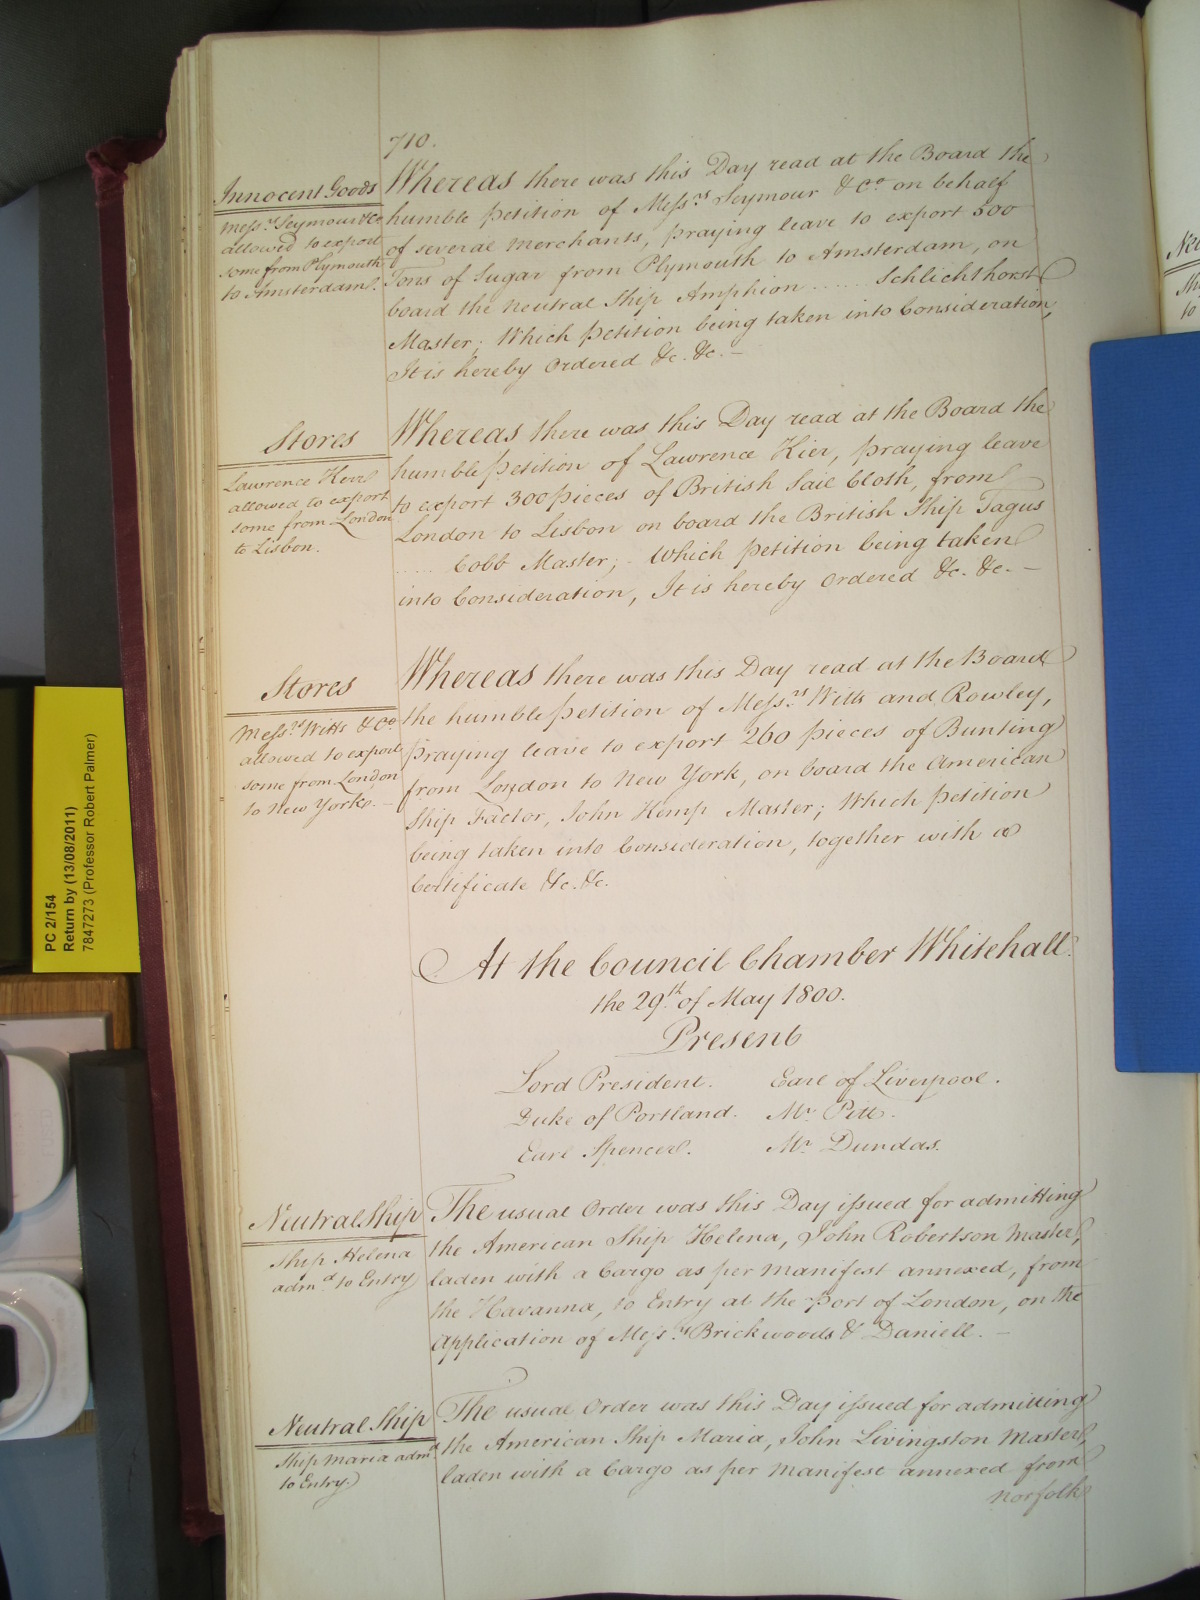 710.
Innocent Goods
Messrs. Seymour & Co
allowed to export
some from Plymouth
to Amsterdam.
Whereas there was this Day read at the Board the
humble petition of Messrs. Seymour & Co. on behalf
of several Merchants, praying leave to export 500
Tons of Sugar from Plymouth to Amsterdam, on
board the Neutral Ship Amphion ...... Schlichthorst
Master; Which petition being taken into Consideration,
It is hereby Ordered &c. &c. —
Stores
Lawrence Kerr
allowed to export
some from London
to Lisbon.
Whereas there was this Day read at the Board the
humble petition of Lawrence Kier, praying leave
to export 300 pieces of British Sail Cloth, from
London to Lisbon on board the British Ship Tagus
..... Cobb Master; Which petition being taken
into Consideration, It is hereby Ordered &c. &c. —
Stores
Messrs. Witts & Co.
allowed to export
some from London
to New York. —
Whereas there was this Day read at the Board
the humble petition of Messrs. Witts and Rowley,
praying leave to export 260 pieces of Bunting
from London to New York, on board the American
Ship Factor, John Kemp Master; Which petition
being taken into Consideration, together with a
Certificate &c. &c.
At the Council Chamber Whitehall
the 29th of May 1800.
Present
Lord President. Earl of Liverpool.
Duke of Portland. Mr. Pitt.
Earl Spencer. Mr. Dundas.
Neutral Ship
Ship Helena
admd. to Entry
The usual Order was this Day issued for admitting
the American Ship Helena, John Robertson Master,
laden with a Cargo as per Manifest annexed, from
the Havanna, to Entry at the Port of London, on the
Application of Messrs. Brickwoods & Daniell. —
Neutral Ship
Ship Maria admd.
to Entry
The usual Order was this Day issued for admitting
the American Ship Maria, John Livingston Master,
laden with a Cargo as per Manifest annexed from
Norfolk
PC 2/154
Return by (13/08/2011)
7847273 (Professor Robert Palmer)